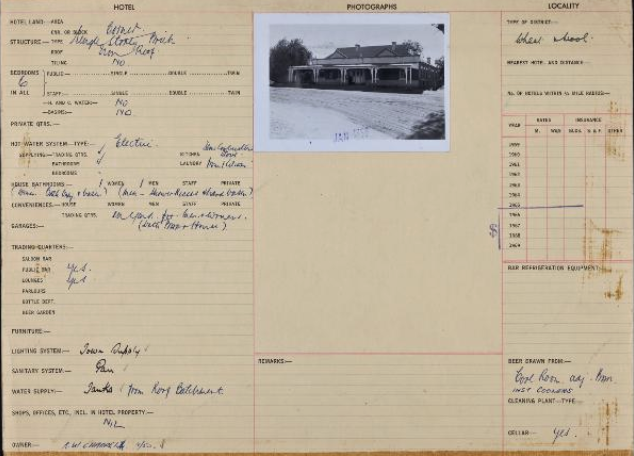 HOTEL
PHOTOGRAPHS
LOCALITY
HOTEL LAND:- AREA
COR. OR BLOCK Corner.
STRUCTURE:- TYPE Single Storey Brick
ROOF Iron Roof
TILING NO
BEDROOMS PUBLIC SINGLE DOUBLE TWIN
6
IN ALL STAFF SINGLE DOUBLE TWIN
H. AND C. WATER:- NO
BASINS:- NO
PRIVATE QTRS.
HOT WATER SYSTEM:-TYPE:- Electric
SUPPLYING:- TRADING QTRS. KITCHEN
BATHROOMS LAUNDRY
BEDROOMS
HOUSE BATHROOMS:- 1 WOMEN 1 MEN STAFF PRIVATE
CONVENIENCES:- HOUSE WOMEN MEN STAFF PRIVATE
TRADING QTRS. In yard for
GARAGES:-
TRADING QUARTERS:-
SALOON BAR
PUBLIC BAR yes.
LOUNGES yes
PARLOURS
BOTTLE DEPT.
BEER GARDEN
FURNITURE:-
LIGHTING SYSTEM:- Town Supply
SANITARY SYSTEM:- Pan
WATER SUPPLY:- Tanks from Roof Catchment
SHOPS, OFFICES, ETC. INCL. IN HOTEL PROPERTY:-
NIL
OWNER:-
REMARKS:-
TYPE OF DISTRICT:-
Wheat
NEAREST HOTEL AND DISTANCE:-
No. OF HOTELS WITHIN ½ MILE RADIUS:-
YEAR RATES INSURANCE
M. W. BLDG. OTHER
1959
1960
1961
1962
1963
1964
1965
1966
1967
1968
1969
BAR REFRIGERATION EQUIPMENT
BEER DRAWN FROM:-
Cool Room adj. Bar
INST COOLERS
CLEANING PLANT:-TYPE
CELLAR:- yes.